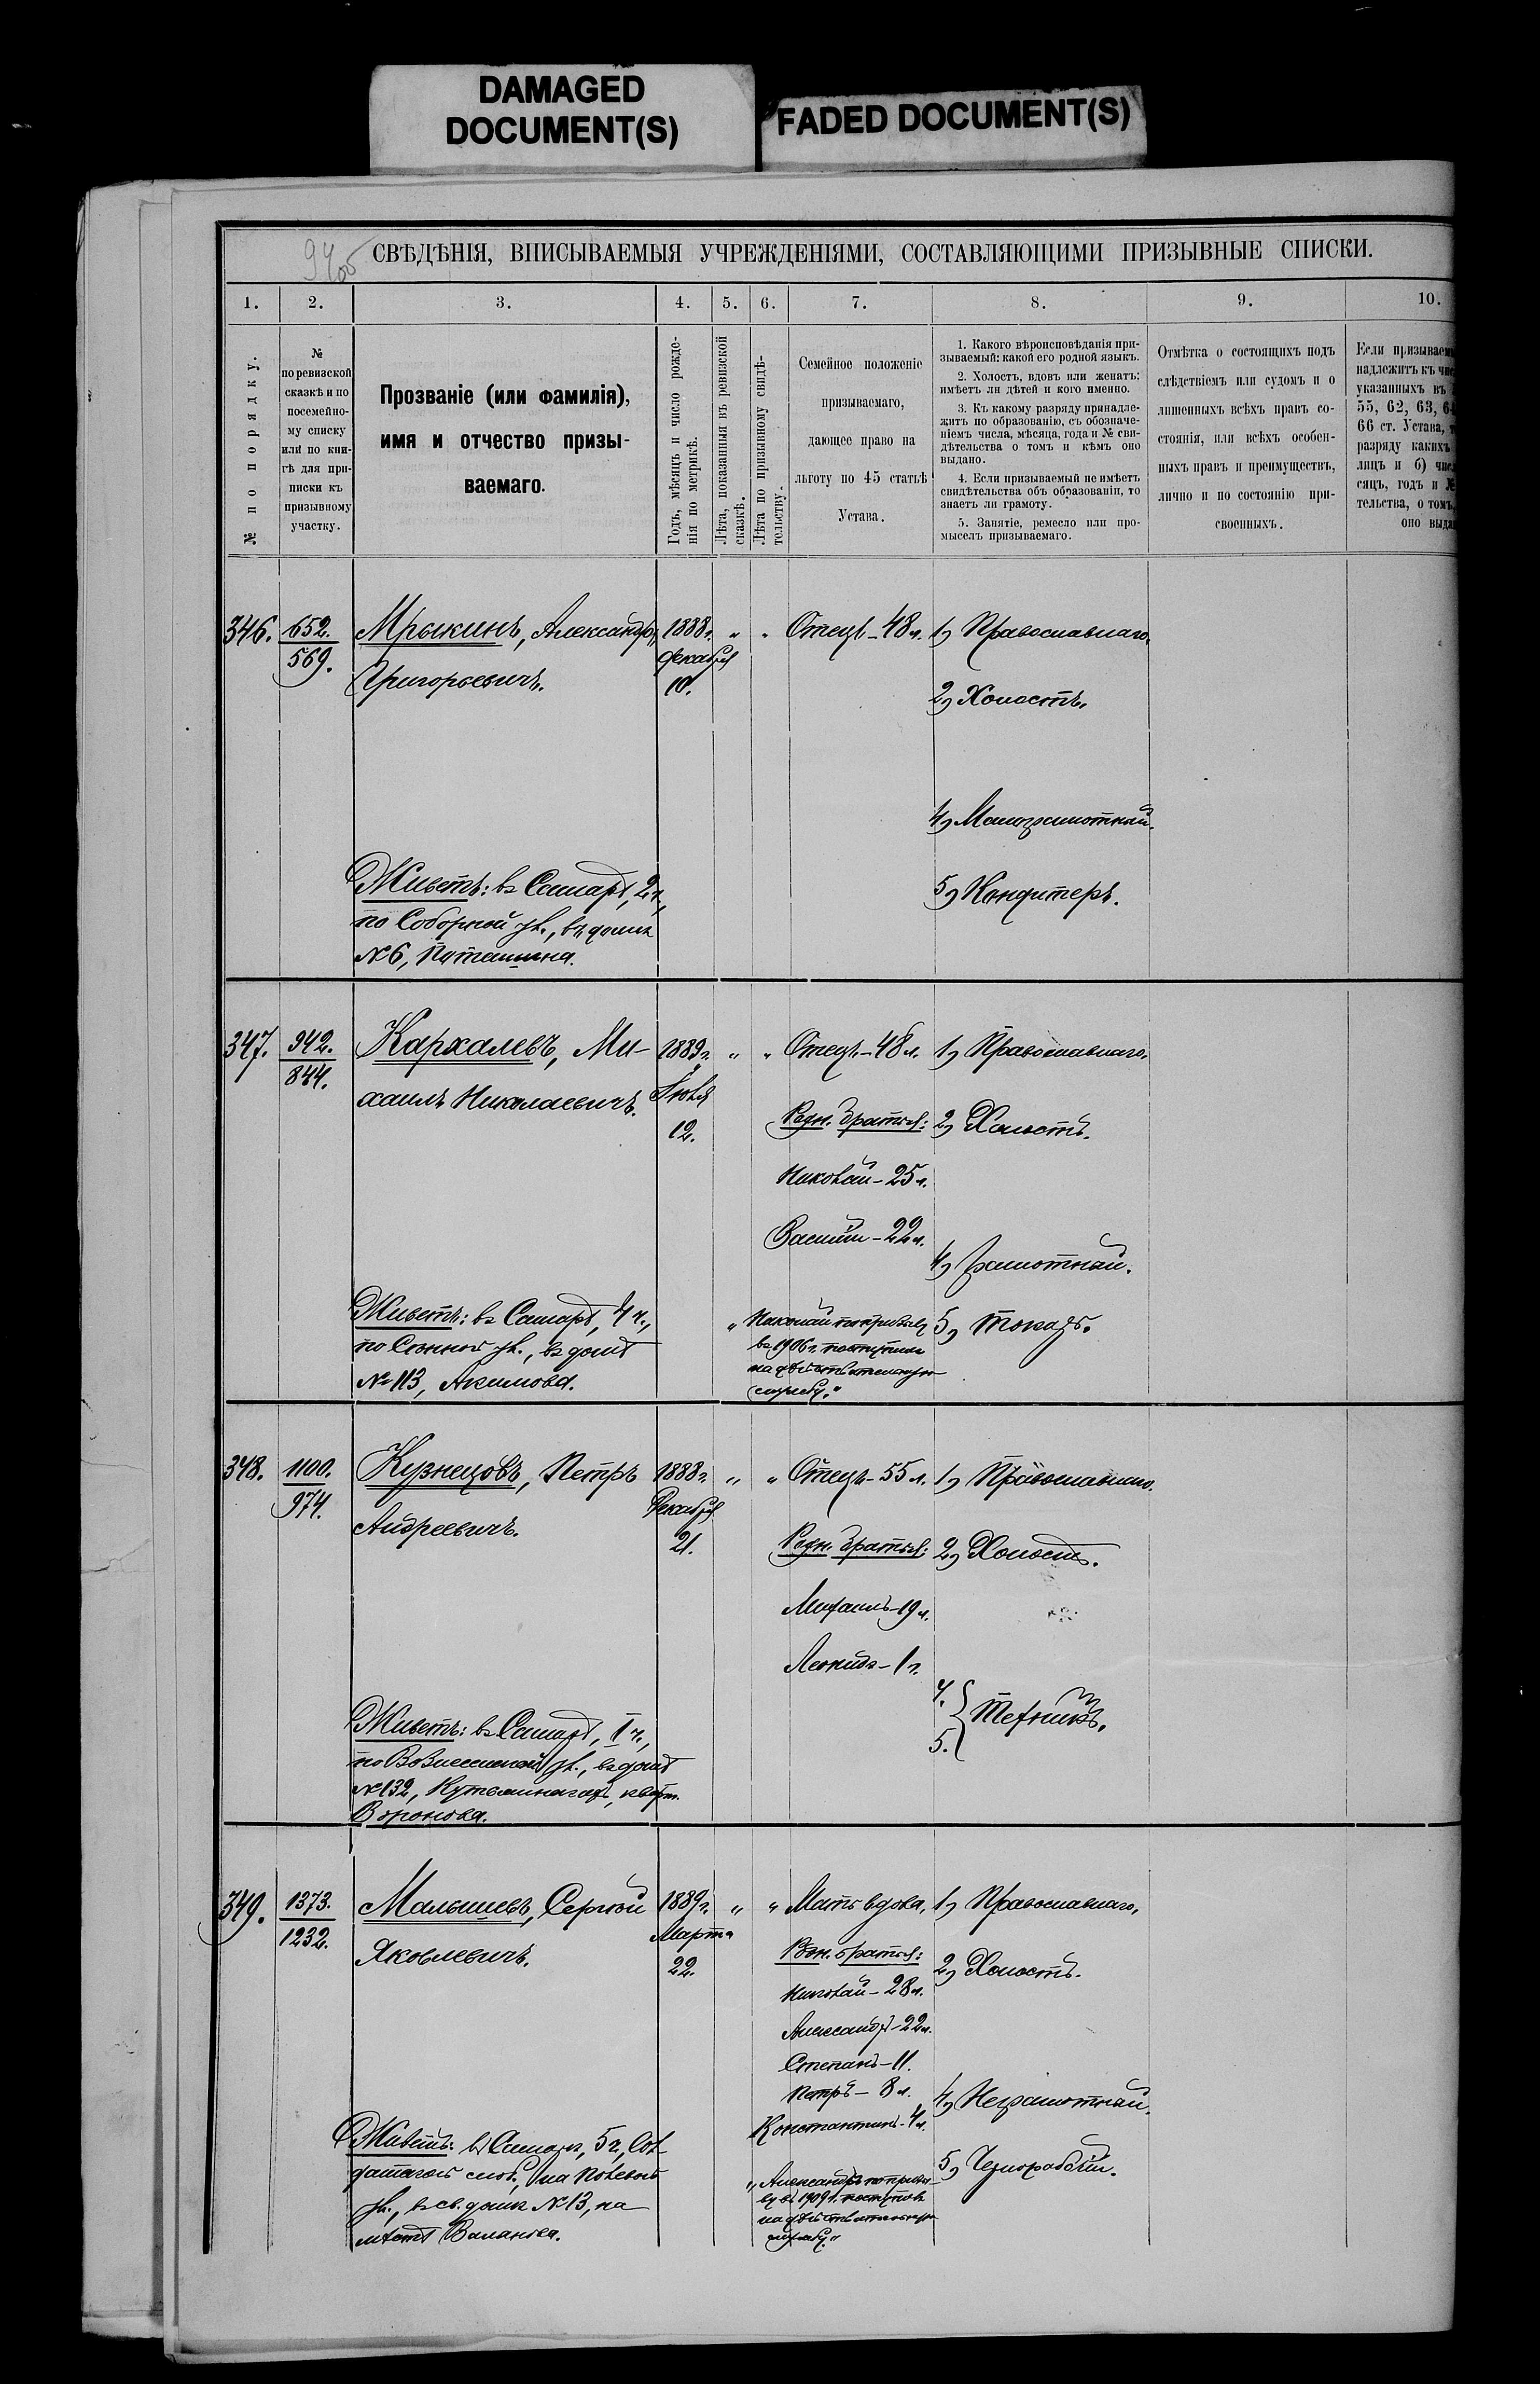 DAMAGED
DOCUMENT(S)
FADED DOCUMENT(S)
СВѢДѢНІЯ, ВПИСЫВАЕМЫЯ УЧРЕЖДЕНІЯМИ, СОСТАВЛЯЮЩИМИ ПРИЗЫВНЫЕ СПИСКИ.
1. 2. 3. 4. 5. 6. 7. 8. 9. 10.
№ по порядку.
№
по ревизской
сказкѣ и по
посемейно-
му списку
или по кни-
гѣ для при-
писки къ
призывному
участку.
Прозваніе (или фамилія),
имя и отчество призы-
ваемаго.
Годъ, мѣсяцъ и число рожде-
нія по метрикѣ.
Лѣта, показанныя въ ревизской
сказкѣ.
Лѣта по призывному свидѣ-
тельству.
Семейное положеніе
призываемаго,
дающее право на
льготу по 45 статьѣ
Устава.
1. Какого вѣроисповѣданія при-
зываемый; какой его родной языкъ.
2. Холостъ, вдовъ или женатъ;
имѣетъ ли дѣтей и кого именно.
3. Къ какому разряду принадле-
житъ по образованію, съ обозначе-
ніемъ числа, мѣсяца, года и № сви-
дѣтельства о томъ и кѣмъ оно
выдано.
4. Если призываемый не имѣетъ
свидѣтельства объ образованіи, то
знаетъ ли грамоту.
5. Занятіе, ремесло или про-
мыселъ призываемаго.
Отмѣтка о состоящихъ подъ
слѣдствіемъ или судомъ и о
лишенныхъ всѣхъ правъ со-
стоянія, или всѣхъ особен-
ныхъ правъ и преимуществъ,
лично и по состоянію при-
своенныхъ.
Если призываем
надлежитъ къ чис
указанныхъ въ
55, 62, 63, 6
66 ст. Устава,
разряду какихъ
лицъ и б) чис
сяцъ, годъ и №
тельства, о томъ,
оно выда
346. 652. Мрыкинъ, Александръ 1888г. " " Отецъ-48л. 1) Православнаго.
569. Григорьевичъ. декабря
10.
2) Холостъ.
4) Малограмотный.
5) Кондитеръ.
Живетъ: въ Самарѣ, 2ч.,
по Соборной ул., въ домѣ
№6, Поташкина.
347. 942. Кархалевъ, Ми- 1889г. " " Отецъ-48л. 1) Православнаго.
844. хаилъ Николаевичъ. Іюля
12.
Родн. братья: 2) Холостъ.
Николай-25л.
Василій-22л.
4) Грамотный.
Живетъ: въ Самарѣ, 4ч.,
по Сѣнной ул., въ домѣ
№113, Акимова.
"Николай по призыву
въ 1906г. поступилъ
на дѣйствительную
службу."
5) Токарь.
348. 1100. Кузнецовъ, Петръ 1888г. " " Отецъ-55л. 1) Православнаго.
974. Андреевичъ. Декабря
21.
Родн. братья: 2) Холостъ.
Михаилъ-19л.
Леонидъ-1г.
4.
5. Техникъ.
Живетъ: въ Самарѣ, 1ч.,
по Вознесенской ул., въ домѣ
№132, кварт.
Воронова.
349. 1373. Малышевъ, Сергѣй 1889г. " " Мать вдова. 1) Православнаго.
1232. Яковлевичъ. Марта
22.
Родн. братья: 2) Холостъ.
Николай-28л.
Александръ-22л.
Степанъ-11.
Петръ-8л.
Константинъ-4л.
4) Неграмотный.
5) Чернорабочій.
Живетъ: въ Самарѣ, 5ч., Сол-
датской слоб., на Полевой
ул., въ св. домѣ №13, на
мѣстѣ
"Александръ по призы-
ву въ 1909г. поступилъ
на дѣйствительную
службу."